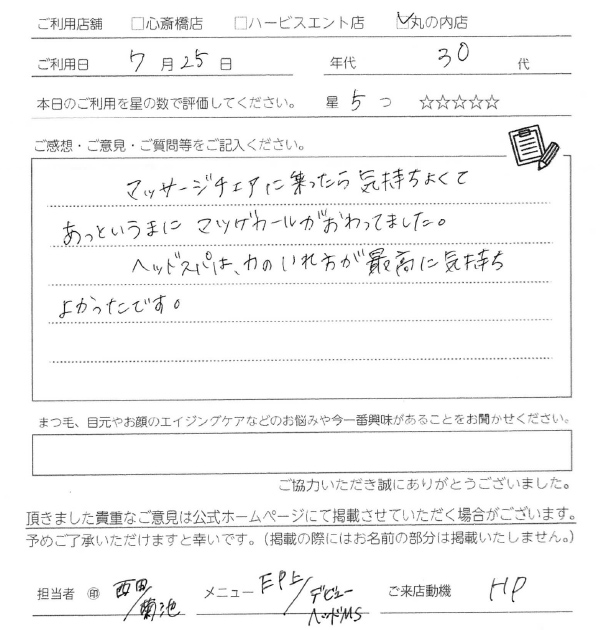 ご利用店舗 □心斎橋店 □ハービスエント店 ☑丸の内店
ご利用日 7月25日 年代 30代
本日のご利用を星の数で評価してください。 星5つ ☆☆☆☆☆
ご感想・ご意見・ご質問等をご記入ください。
マッサージチェアに乗ったら気持ちよくて
あっというまにマツゲカールがおわってました。
ヘッドスパは、力のいれ方が最高に気持ち
よかったです。
まつ毛、目元やお顔のエイジングケアなどのお悩みや今一番興味があることをお聞かせください。
ご協力いただき誠にありがとうございました。
頂きました貴重なご意見は公式ホームページにて掲載させていただく場合がございます。
予めご了承いただけますと幸いです。（掲載の際にはお名前の部分は掲載いたしません。）
担当者 ㊞ 西田/菊池 メニュー EPE/デビューヘッドMS ご来店動機 HP